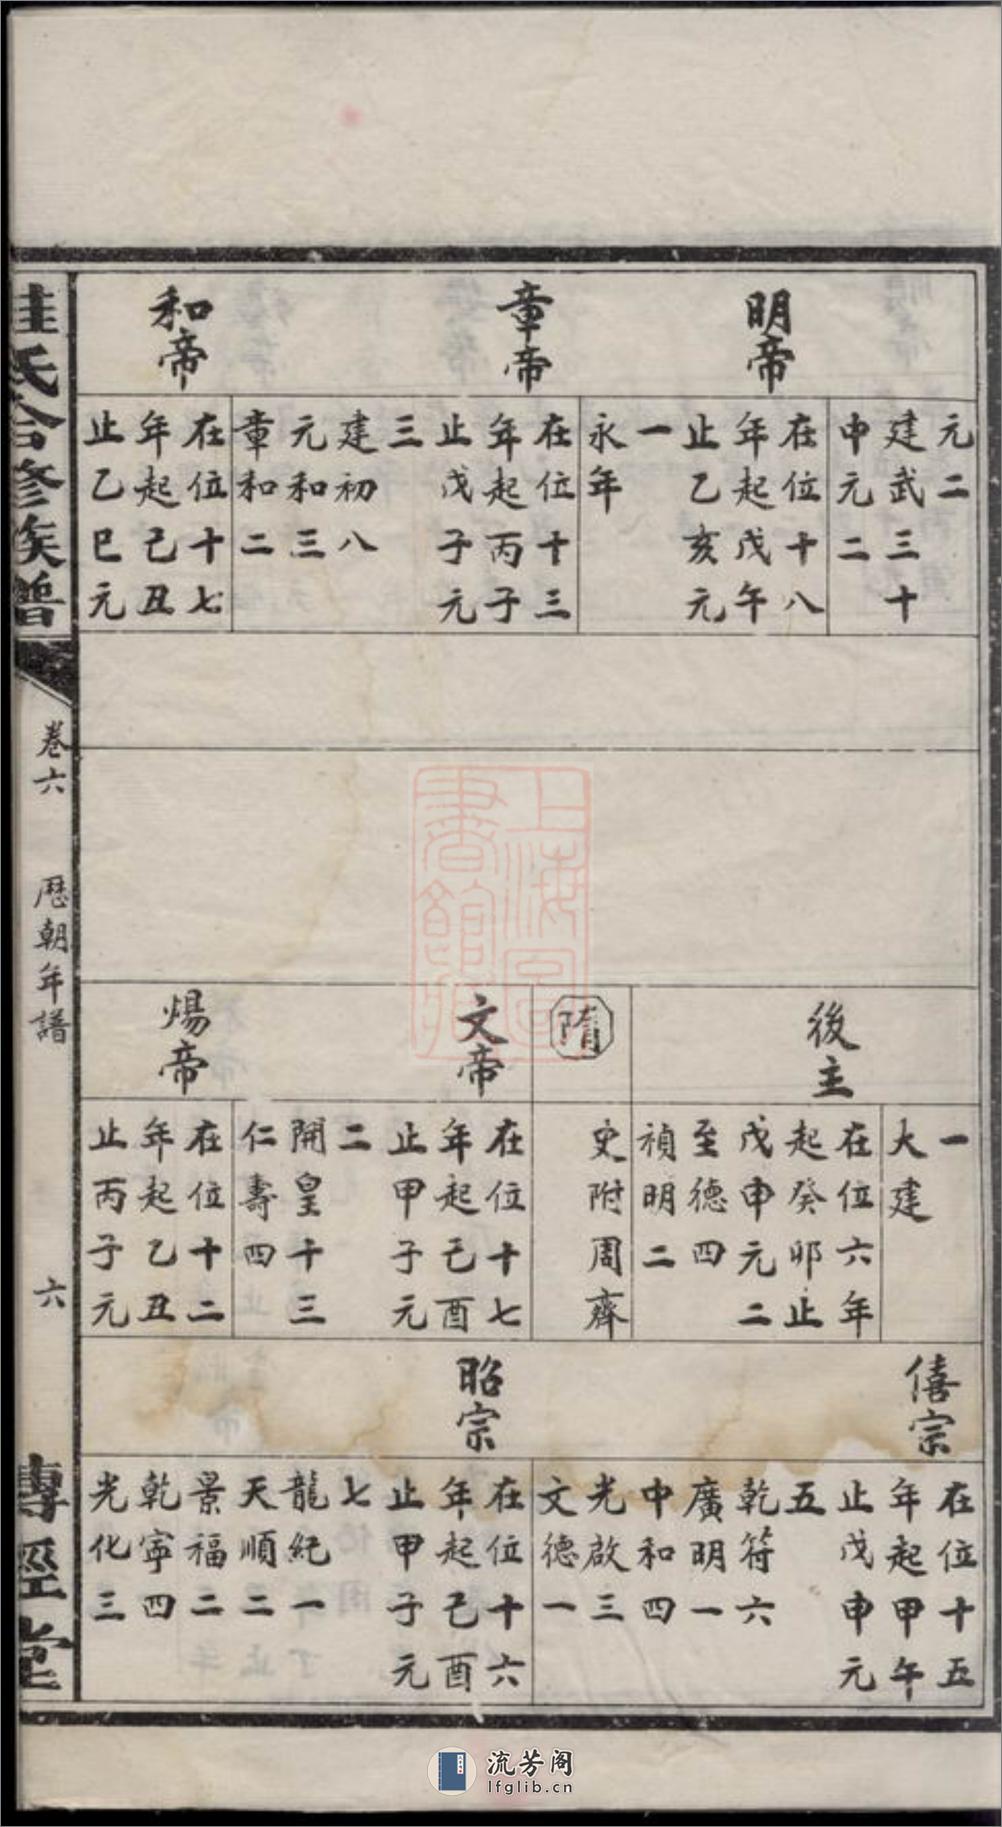 元二
建武三十
中元二
明帝
在位十八
年起戊午
止乙亥元
一
永年
章帝
在位十三
年起丙子
止戊子元
三
建初八
元和三
章和二
和帝
在位十七
年起己丑
止乙巳元
一
大建
後主
在位六年
起癸卯止
戊申元二
至德四
禎明二
隋
史附周齊
文帝
在位十七
年起己酉
止甲子元
二
開皇十三
仁壽四
煬帝
在位十二
年起乙丑
止丙子元
僖宗
在位十五
年起甲午
止戊申元
五
乾符六
廣明一
中和四
光啟三
文德一
昭宗
在位十六
年起己酉
止甲子元
七
龍紀一
天順二
景福二
乾寧四
光化三
桂氏合修族譜
卷六
歷朝年譜
六
傳經堂
上海圖
書館藏
流芳阁
lfglib.cn